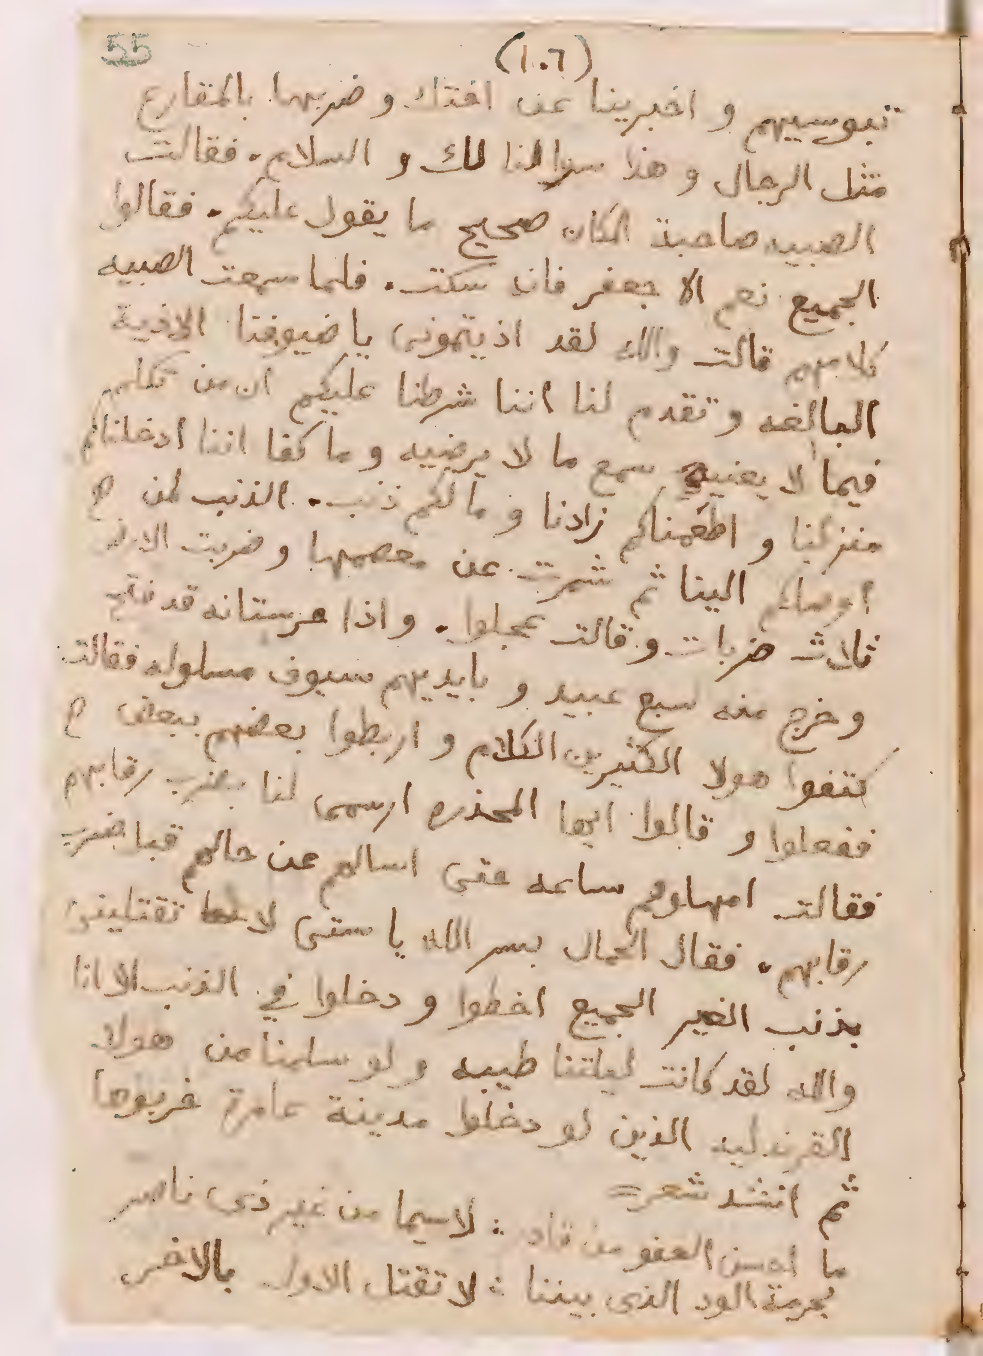 55
(١٠٦)
تبوسيهم و اخبرينا عن اختك و ضربها بالمقارع
مثل الرجال و هذا سوالنا لك و السلام. فقالت
الصبيه صاحبة المكان صحيح ما يقول عليكم. فقالوا
الجميع نعم الا جعفر فانه سكت. فلما سمعت الصبيه
كلامهم قالت والله لقد اذيتمونى يا ضيوفنا الاذية
البالغه و تقدم لنا اننا شرطنا عليكم ان من تكلم
فيما لا يعنيه سمع ما لا يرضيه و ما كفا اننا ادخلناكم
منزلنا و اطعمناكم زادنا و ما لكم ذنب. الذنب لمن
اوصلكم الينا ثم شمرت عن معصمها و ضربت الارض
ثلاث ضربات و قالت عجلوا. و اذا خرستانه قد فتح
و خرج منه سبع عبيد و بايديهم سيوف مسلوله فقالت
كتفوا هولا الكثيرين الكلام و اربطوا بعضهم ببعض
ففعلوا و قالوا ايها المخدره ارسمى لنا بضرب رقابهم
فقالت امهلوهم ساعه حتى اسالهم عن حالهم قبل ضرب
رقابهم. فقال الحمال بسر الله يا ستى لا تقتلينى
بذنب الغير الجميع اخطوا و دخلوا في الذنب الا انا
والله لقد كانت ليلتنا طيبه و لو سلمنا من هولا
القرندليه الذين لو دخلوا مدينة عامرة خربوها
ثم انشد شعر
ما احسن العفو من قادر : لاسيما من غير ذى ناصر
بحرمة الود الذى بيننا : لا تقتل الاول بالاخر